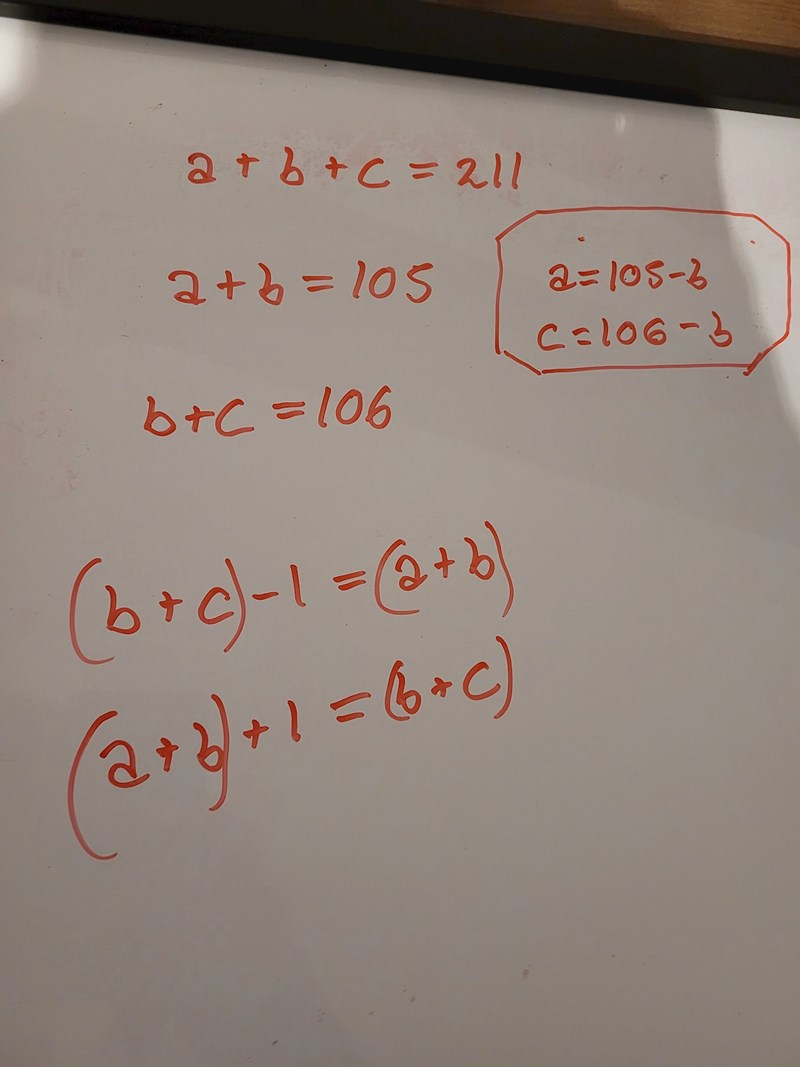 a + b + c = 211
a + b = 105
a = 105 - b
c = 106 - b
b + c = 106
(b + c) - 1 = (a + b)
(a + b) + 1 = (b + c)